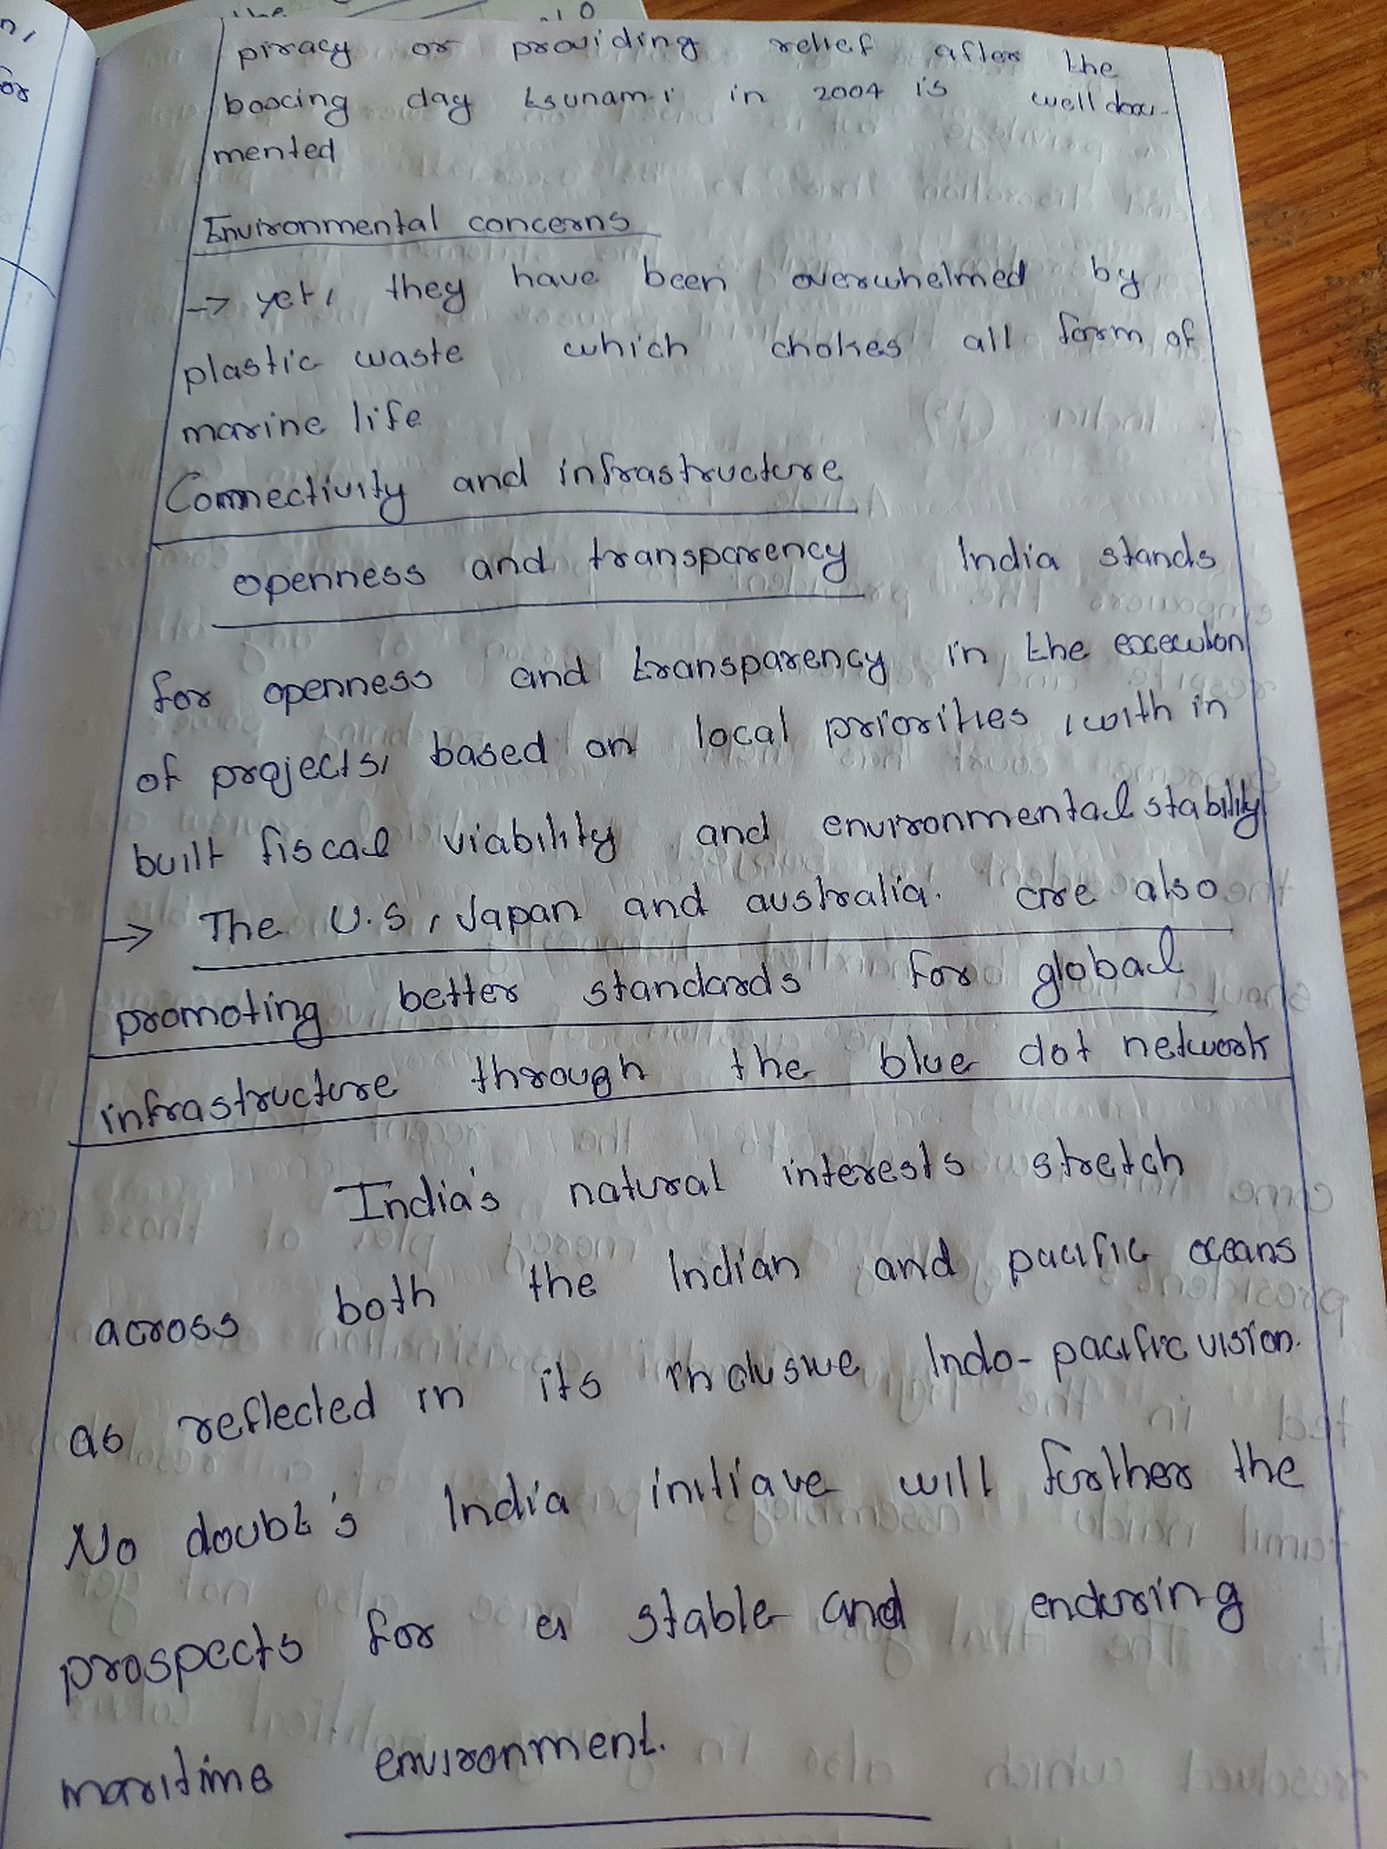 piracy or providing relief after the
boocing day tsunami in 2004 is well docu-
mented
Environmental concerns
-> yet, they have been overwhelmed by
plastic waste which chokes all form of
marine life
Connectivity and infrastructure
openness and transparency India stands
for openness and transparency in the execution
of projects, based on local priorities, with in
built fiscal viability and environmental stability
-> The U.S, Japan and australia. are also
promoting better standards for global
infrastructure through the blue dot network
India's natural interests stretch
across both the Indian and pacific oceans
as reflected in its inclusive Indo-pacific vision.
No doubt's India initiave will further the
prospects for a stable and enduring
maritime environment.